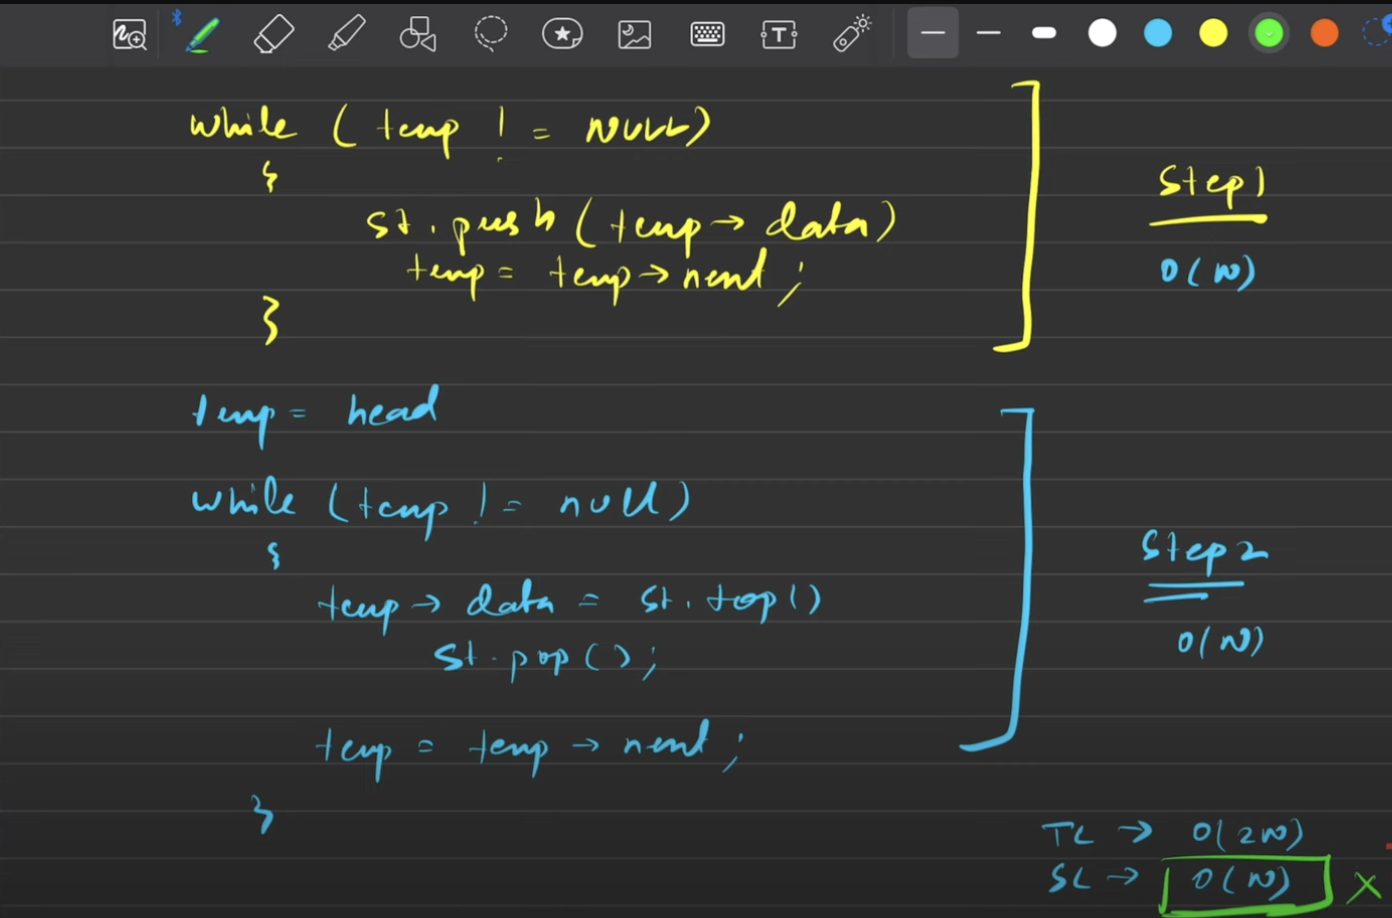 while ( temp != NULL)
{
st.push(temp→data)
temp = temp→next;
}
Step1
O(N)
temp = head
while (temp != null)
{
temp→ data = st.top()
st.pop();
temp = temp → next;
}
Step2
O(N)
TC → O(2N)
SC → O(N) X